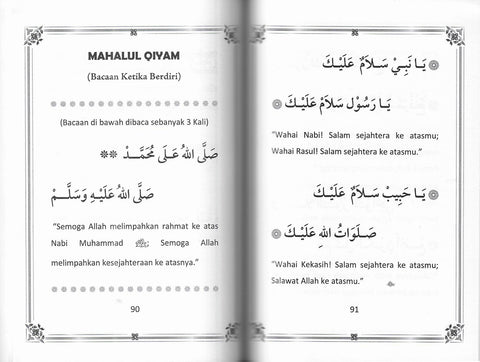 MAHALUL QIYAM
(Bacaan Ketika Berdiri)
(Bacaan di bawah dibaca sebanyak 3 Kali)
صَلَّى اللهُ عَلَى مُحَمَّـــدْ **
صَلَّى اللهُ عَلَيْـهِ وَسَلَّـــمْ
"Semoga Allah melimpahkan rahmat ke atas
Nabi Muhammad ﷺ Semoga Allah
melimpahkan kesejahteraan ke atasnya."
90
يَـا نَبِيْ سَـلاَمٌ عَلَيْـكَ
يَـا رَسُوْل سَلاَمٌ عَلَيْـكَ
"Wahai Nabi! Salam sejahtera ke atasmu;
Wahai Rasul! Salam sejahtera ke atasmu."
يَـا حَبِيبْ سَـلاَمٌ عَلَيْـكَ
صَلَـوَاتُ اللهِ عَلَيْـكَ
"Wahai Kekasih! Salam sejahtera ke atasmu;
Salawat Allah ke atasmu."
91